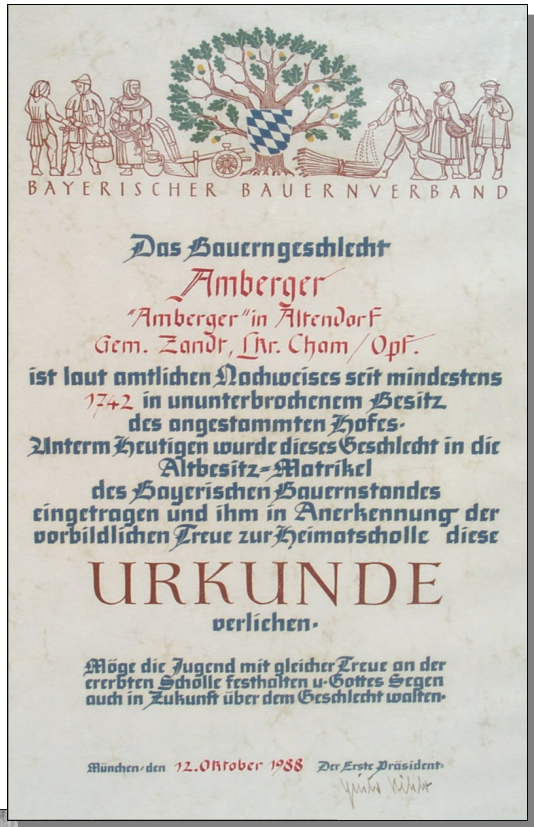 BAYERISCHER BAUERNVERBAND
Das Bauerngeschlecht
Amberger
"Amberger" in Altendorf
Gem. Zandt, Lkr. Cham/Opf.
ist laut amtlichen Nachweises seit mindestens
1742 in ununterbrochenem Besitz
des angestammten Hofes.
Unterm Heutigen wurde dieses Geschlecht in die
Altbesitz-Matrikel
des Bayerischen Bauernstandes
eingetragen und ihm in Anerkennung der
vorbildlichen Treue zur Heimatscholle diese
URKUNDE
verliehen.
Möge die Jugend mit gleicher Treue an der
ererbten Scholle festhalten u. Gottes Segen
auch in Zukunft über dem Geschlecht walten.
München, den 12. Oktober 1988 Der Erste Präsident